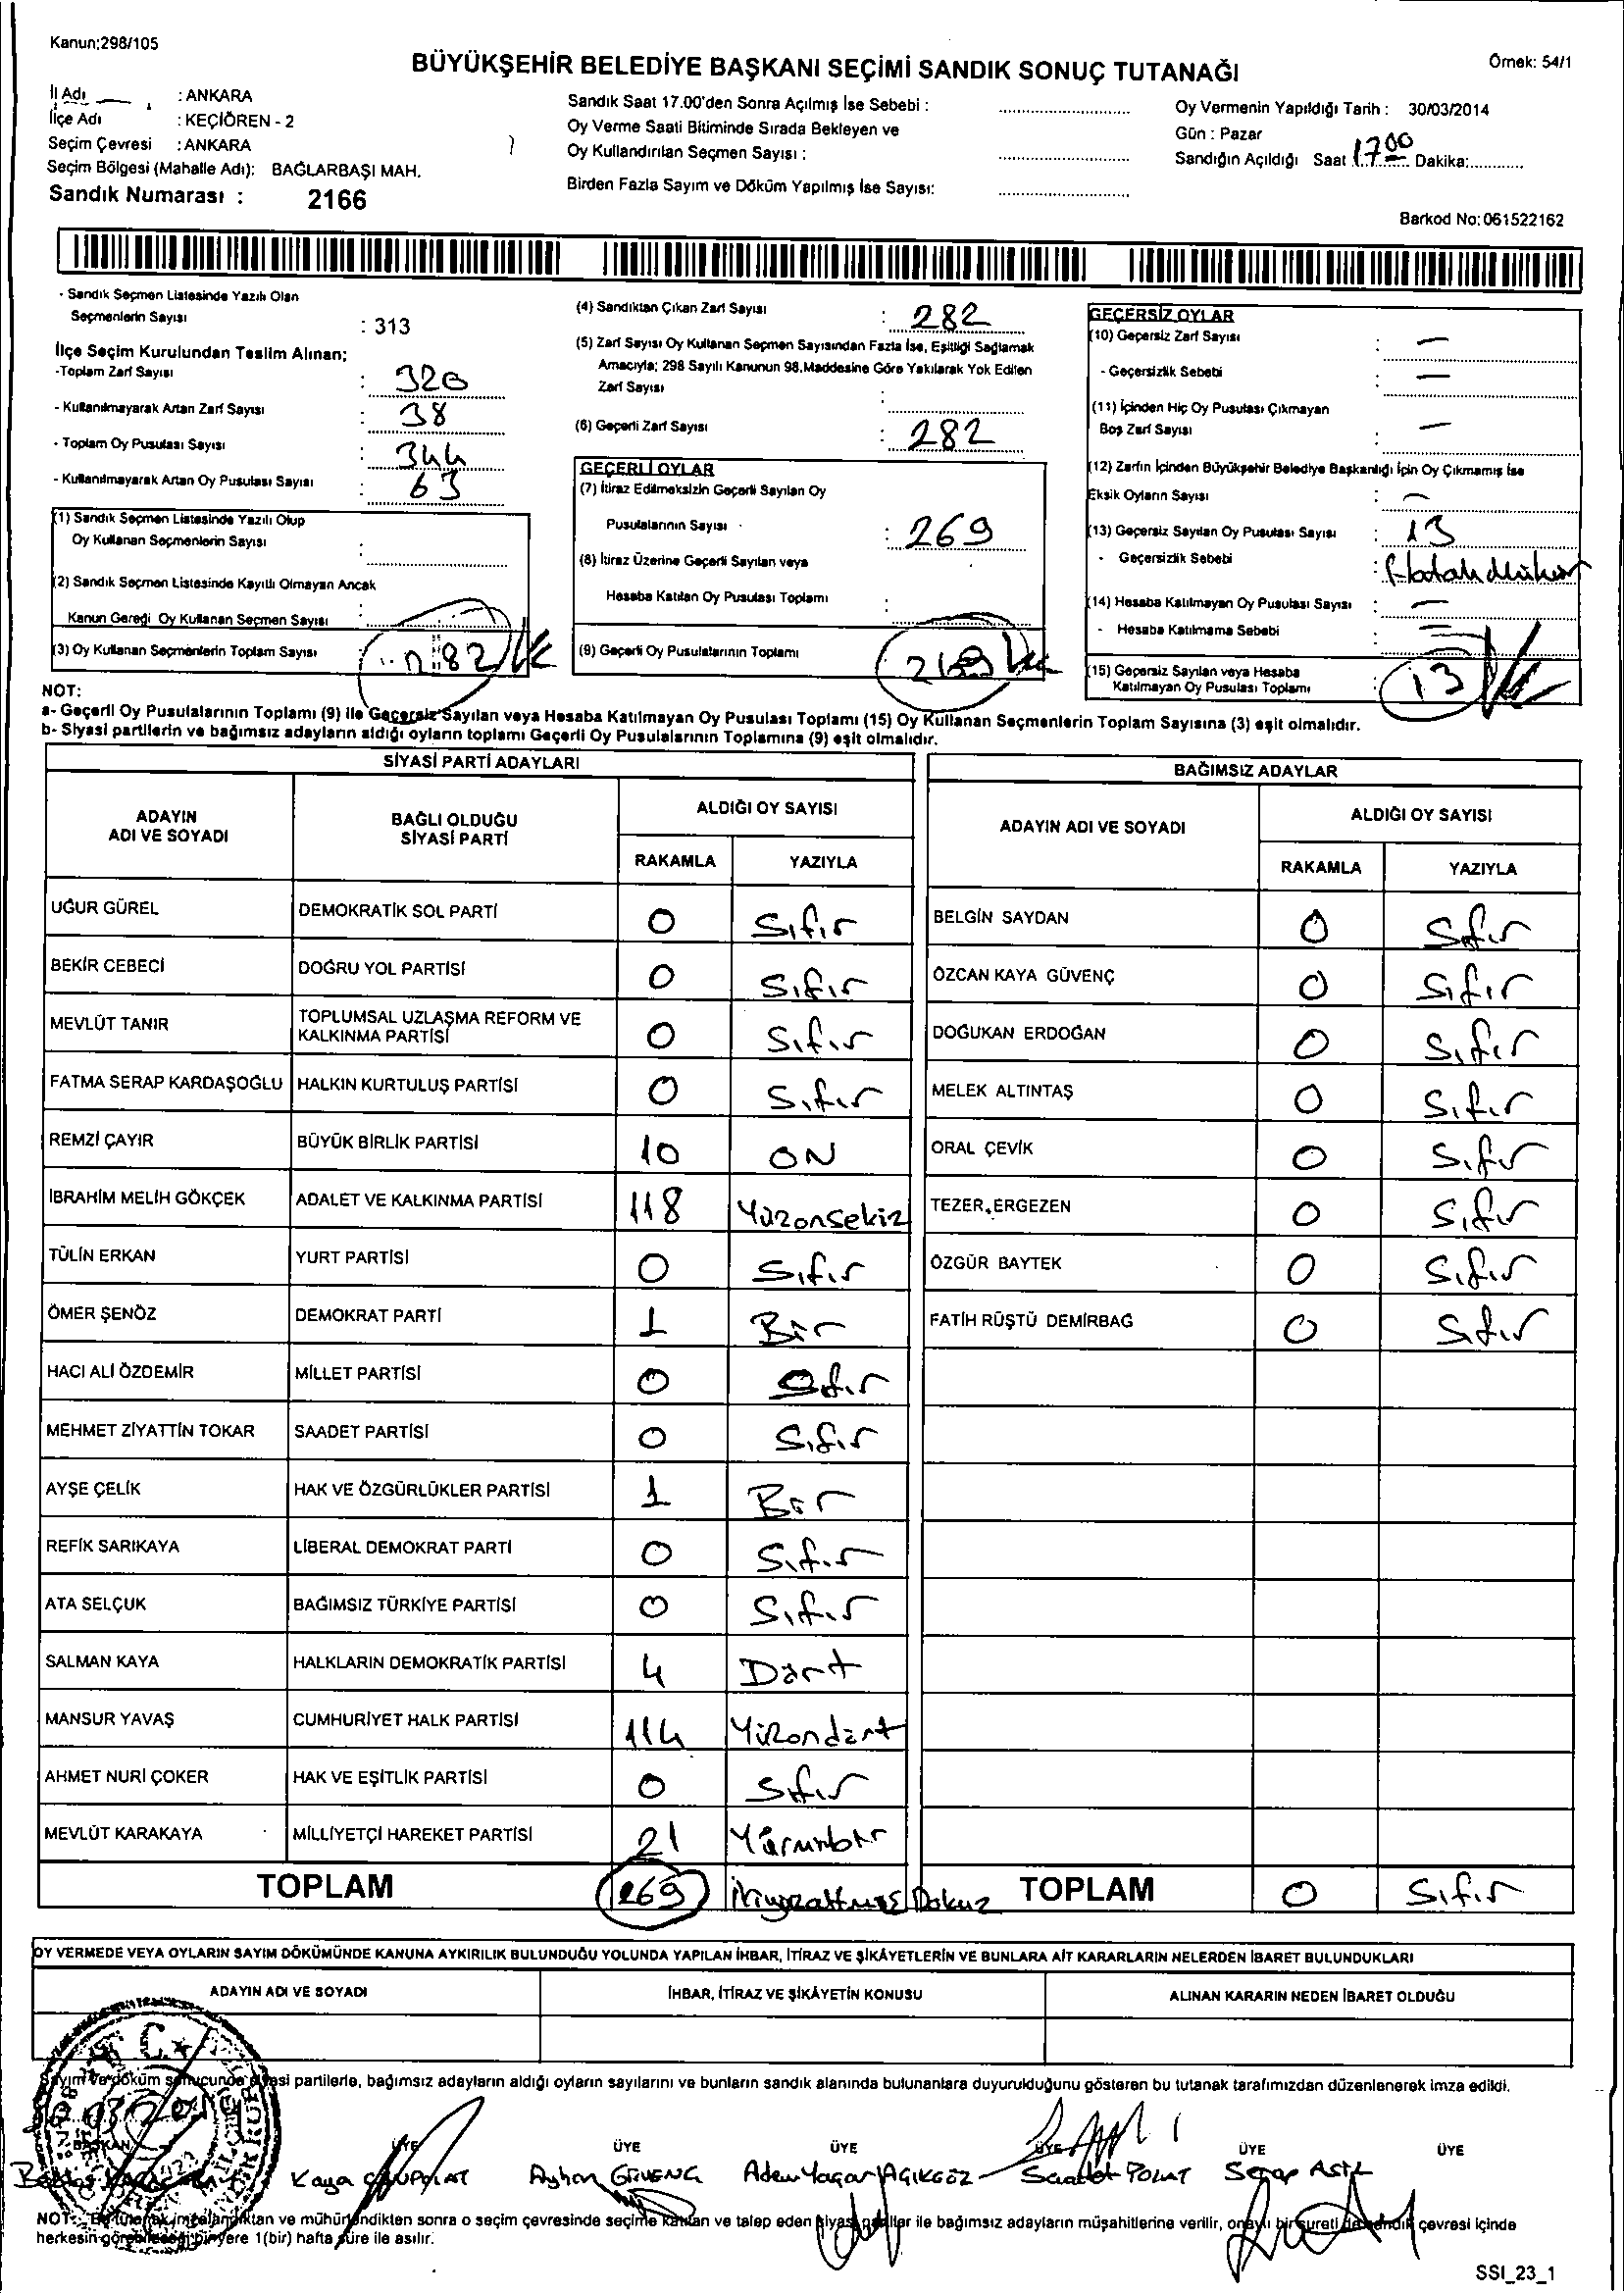 Kanun:298/105
Örnek: 54/1
BÜYÜKŞEHİR BELEDİYE BAŞKANI SEÇİMİ SANDIK SONUÇ TUTANAĞI
İl Adı : ANKARA
İlçe Adı : KEÇİÖREN - 2
Seçim Çevresi : ANKARA
Seçim Bölgesi (Mahalle Adı): BAĞLARBAŞI MAH.
Sandık Numarası : 2166
Sandık Saat 17.00'den Sonra Açılmış İse Sebebi :
Oy Verme Saati Bitiminde Sırada Bekleyen ve
Oy Kullandırılan Seçmen Sayısı :
Birden Fazla Sayım ve Döküm Yapılmış İse Sayısı:
Oy Vermenin Yapıldığı Tarih : 30/03/2014
Gün : Pazar
Sandığın Açıldığı Saat 17.00 Dakika:
Barkod No: 061522162
- Sandık Seçmen Listesinde Yazılı Olan
Seçmenlerin Sayısı : 313
İlçe Seçim Kurulundan Teslim Alınan;
-Toplam Zarf Sayısı : 320
- Kullanılmayarak Artan Zarf Sayısı : 38
- Toplam Oy Pusulası Sayısı : 344
- Kullanılmayarak Artan Oy Pusulası Sayısı : 63
(1) Sandık Seçmen Listesinde Yazılı Olup
Oy Kullanan Seçmenlerin Sayısı :
(2) Sandık Seçmen Listesinde Kayıtlı Olmayan Ancak
Kanun Gereği Oy Kullanan Seçmen Sayısı :
(3) Oy Kullanan Seçmenlerin Toplam Sayısı : 282
(4) Sandıktan Çıkan Zarf Sayısı : 282
(5) Zarf Sayısı Oy Kullanan Seçmen Sayısından Fazla İse, Eşitliği Sağlamak
Amacıyla; 298 Sayılı Kanunun 98.Maddesine Göre Yakılarak Yok Edilen
Zarf Sayısı :
(6) Geçerli Zarf Sayısı : 282
GEÇERLİ OYLAR
(7) İtiraz Edilmeksizin Geçerli Sayılan Oy
Pusulalarının Sayısı : 269
(8) İtiraz Üzerine Geçerli Sayılan veya
Hesaba Katılan Oy Pusulası Toplamı :
(9) Geçerli Oy Pusulalarının Toplamı 269
GEÇERSİZ OYLAR
(10) Geçersiz Zarf Sayısı : —
- Geçersizlik Sebebi : —
(11) İçinden Hiç Oy Pusulası Çıkmayan
Boş Zarf Sayısı : —
(12) Zarfın İçinden Büyükşehir Belediye Başkanlığı İçin Oy Çıkmamış İse
Eksik Oyların Sayısı : —
(13) Geçersiz Sayılan Oy Pusulası Sayısı : 13
- Geçersizlik Sebebi :
(14) Hesaba Katılmayan Oy Pusulası Sayısı : —
- Hesaba Katılmama Sebebi : —
(15) Geçersiz Sayılan veya Hesaba
Katılmayan Oy Pusulası Toplamı : 13
NOT:
a- Geçerli Oy Pusulalarının Toplamı (9) ile Geçersiz Sayılan veya Hesaba Katılmayan Oy Pusulası Toplamı (15) Oy Kullanan Seçmenlerin Toplam Sayısına (3) eşit olmalıdır.
b- Siyasi partilerin ve bağımsız adayların aldığı oyların toplamı Geçerli Oy Pusulalarının Toplamına (9) eşit olmalıdır.
SİYASİ PARTİ ADAYLARI
ADAYIN ADI VE SOYADI BAĞLI OLDUĞU SİYASİ PARTİ ALDIĞI OY SAYISI
RAKAMLA YAZIYLA
UĞUR GÜREL DEMOKRATİK SOL PARTİ 0 Sıfır
BEKİR CEBECİ DOĞRU YOL PARTİSİ 0 Sıfır
MEVLÜT TANIR TOPLUMSAL UZLAŞMA REFORM VE KALKINMA PARTİSİ 0 Sıfır
FATMA SERAP KARDAŞOĞLU HALKIN KURTULUŞ PARTİSİ 0 Sıfır
REMZİ ÇAYIR BÜYÜK BİRLİK PARTİSİ 10 ON
İBRAHİM MELİH GÖKÇEK ADALET VE KALKINMA PARTİSİ 118 Yüzonsekiz
TÜLİN ERKAN YURT PARTİSİ 0 Sıfır
ÖMER ŞENÖZ DEMOKRAT PARTİ 1 Bir
HACI ALİ ÖZDEMİR MİLLET PARTİSİ 0 Sıfır
MEHMET ZİYATTİN TOKAR SAADET PARTİSİ 0 Sıfır
AYŞE ÇELİK HAK VE ÖZGÜRLÜKLER PARTİSİ 1 Bir
REFİK SARIKAYA LİBERAL DEMOKRAT PARTİ 0 Sıfır
ATA SELÇUK BAĞIMSIZ TÜRKİYE PARTİSİ 0 Sıfır
SALMAN KAYA HALKLARIN DEMOKRATİK PARTİSİ 4 Dört
MANSUR YAVAŞ CUMHURİYET HALK PARTİSİ 114 Yüzondört
AHMET NURİ ÇOKER HAK VE EŞİTLİK PARTİSİ 0 Sıfır
MEVLÜT KARAKAYA MİLLİYETÇİ HAREKET PARTİSİ 21 Yirmibir
TOPLAM 269 İkiyüzaltmış Dokuz
BAĞIMSIZ ADAYLAR
ADAYIN ADI VE SOYADI ALDIĞI OY SAYISI
RAKAMLA YAZIYLA
BELGİN SAYDAN 0 Sıfır
ÖZCAN KAYA GÜVENÇ 0 Sıfır
DOĞUKAN ERDOĞAN 0 Sıfır
MELEK ALTINTAŞ 0 Sıfır
ORAL ÇEVİK 0 Sıfır
TEZER ERGEZEN 0 Sıfır
ÖZGÜR BAYTEK 0 Sıfır
FATİH RÜŞTÜ DEMİRBAĞ 0 Sıfır
TOPLAM 0 Sıfır
OY VERMEDE VEYA OYLARIN SAYIM DÖKÜMÜNDE KANUNA AYKIRILIK BULUNDUĞU YOLUNDA YAPILAN İHBAR, İTİRAZ VE ŞİKÂYETLERİN VE BUNLARA AİT KARARLARIN NELERDEN İBARET BULUNDUKLARI
ADAYIN ADI VE SOYADI İHBAR, İTİRAZ VE ŞİKÂYETİN KONUSU ALINAN KARARIN NEDEN İBARET OLDUĞU
Sayım ve döküm sonucunda siyasi partilerle, bağımsız adayların aldığı oyların sayılarını ve bunların sandık alanında bulunanlara duyurulduğunu gösteren bu tutanak tarafımızdan düzenlenerek imza edildi.
BAŞKAN ÜYE ÜYE ÜYE ÜYE ÜYE ÜYE
Kaya Ayhan GÜVENÇ Adem Yaşar AÇIKGÖZ Saadet POLAT Serap
NOT: Bu tutanak imzalandıktan ve mühürlendikten sonra o seçim çevresinde seçime katılan ve talep eden siyasi partiler ile bağımsız adayların müşahitlerine verilir, onaylı bir sureti de sandık çevresi içinde
herkesin görebileceği bir yere 1(bir) hafta süre ile asılır.
SSI_23_1